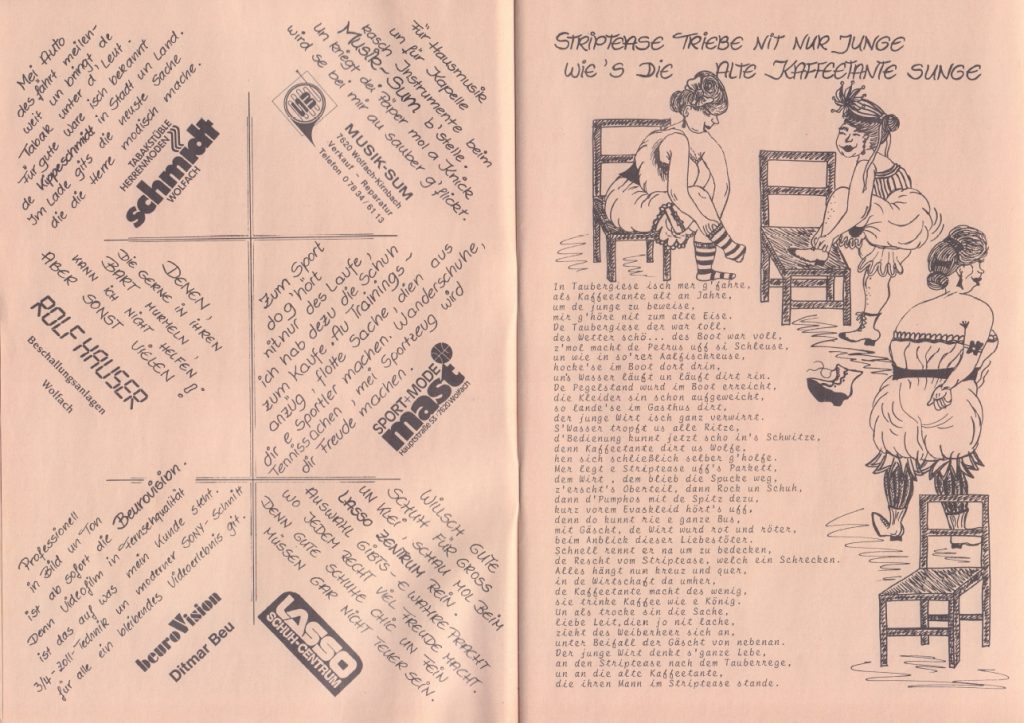 Mei Auto
des fahrt meilen-
weit un bringt de
Tabak unter d' Leut.
Für gute Ware isch bekannt
de Kippeschmidt in Stadt un Land.
Im Lade gits die neuste Sache
die die Herre modisch mache.
TABAKSTÜBLE
HERRENMODEN
schmidt
WOLFACH
Für Hausmusik
un für Kapelle
rasch Instrumente beim
MUSIK-SUM b'stelle.
Un kriegt dei Paper mol a Knick
wird se bei mir au sauber g'flickt.
MUSIK-SUM
7620 Wolfach-Kirnbach
Verkauf - Reparatur
Telefon 07834/6113
DENEN,
DIE GERNE IN IHREN
BART MURMELN
KANN ICH NICHT HELFEN
ABER SONST VIELEN!
ROLF HAUSER
Beschallungsanlagen
Wolfach
Zum Sport
do g'hört
nit nur des Laufe,
ich hab dezu die Schuh
zum Kaufe. Au Trainings-
anzüg, flotte Sache, dien aus
dir e Sportler mache. Wanderschuhe,
Tennissachen, mei Sportzeug wird
dir Freude machen.
SPORT+MODE
mast
Hauptstraße 53, 7620 Wolfach
Professionell
in Bild un Ton
ist ab sofort die Beurovision.
Denn Videofilm in Fernsehqualität
ist das auf was mein Kunde steht.
3/4-Zoll-Technik un moderner SONY-Schnitt
für alle ein bleibendes Videoerlebnis git.
beuroVision
Ditmar Beu
WILLSCH GUTE
SCHUH FÜR GROSS
UN KLEI SCHAU MOL BEIM
LASSO ZENTRUM REIN.
AUSWAHL GIBTS E WAHRE PRACHT
WO JEDEM RECHT VIEL FREUDE MACHT.
DENN GUTE SCHUHE CHIC UN FEIN
MÜSSEN GAR NICHT TEUER SEIN.
LASSO
SCHUH-CENTRUM
STRIPTEASE TRIEBE NIT NUR JUNGE
WIE'S DIE ALTE KAFFEETANTE SUNGE
In Taubergiese isch mer g'fahre,
als Kaffeetante alt an Jahre,
um de junge zu beweise,
mir g'höre nit zum alte Eise.
De Taubergiese der war toll,
des Wetter schö... des Boot war voll,
z'mol macht de Petrus uff si Schleuse,
un wie in so'rer Aalfischreuse,
hocke'se im Boot dort drin,
un's Wasser läuft un läuft dirt rin.
De Pegelstand wurd im Boot erreicht,
die Kleider sin schon aufgeweicht,
so lande'se im Gasthus dirt,
der junge Wirt isch ganz verwirrt.
S'Wasser tropft us alle Ritze,
d'Bedienung kunnt jetzt scho in's Schwitze,
denn Kaffeetante dirt us Wolfe,
hen sich schließlich selber g'holfe.
Mer legt e Striptease uff's Parkett,
dem Wirt , dem blieb die Spucke weg,
z'erscht's Oberteil, dann Rock un Schuh,
dann d'Pumphos mit de Spitz dezu,
kurz vorem Evaskleid hört's uff,
denn do kunnt rie e ganze Bus,
mit Gäscht, de Wirt wurd rot und röter,
beim Anblick dieser Liebestöter.
Schnell rennt er na um zu bedecken,
de Rescht vom Striptease, welch ein Schrecken.
Alles hängt nun kreuz und quer,
in de Wirtschaft da umher,
de Kaffeetante macht des wenig,
sie trinke Kaffee wie e König.
Un als trocke sin die Sache,
liebe Leit,dien jo nit lache,
zieht des Weiberheer sich an,
unter Beifall der Gäscht von nebenan.
Der junge Wirt denkt s'ganze Lebe,
an den Striptease nach dem Tauberrege,
un an die alte Kaffeetante,
die ihren Mann im Striptease stande.